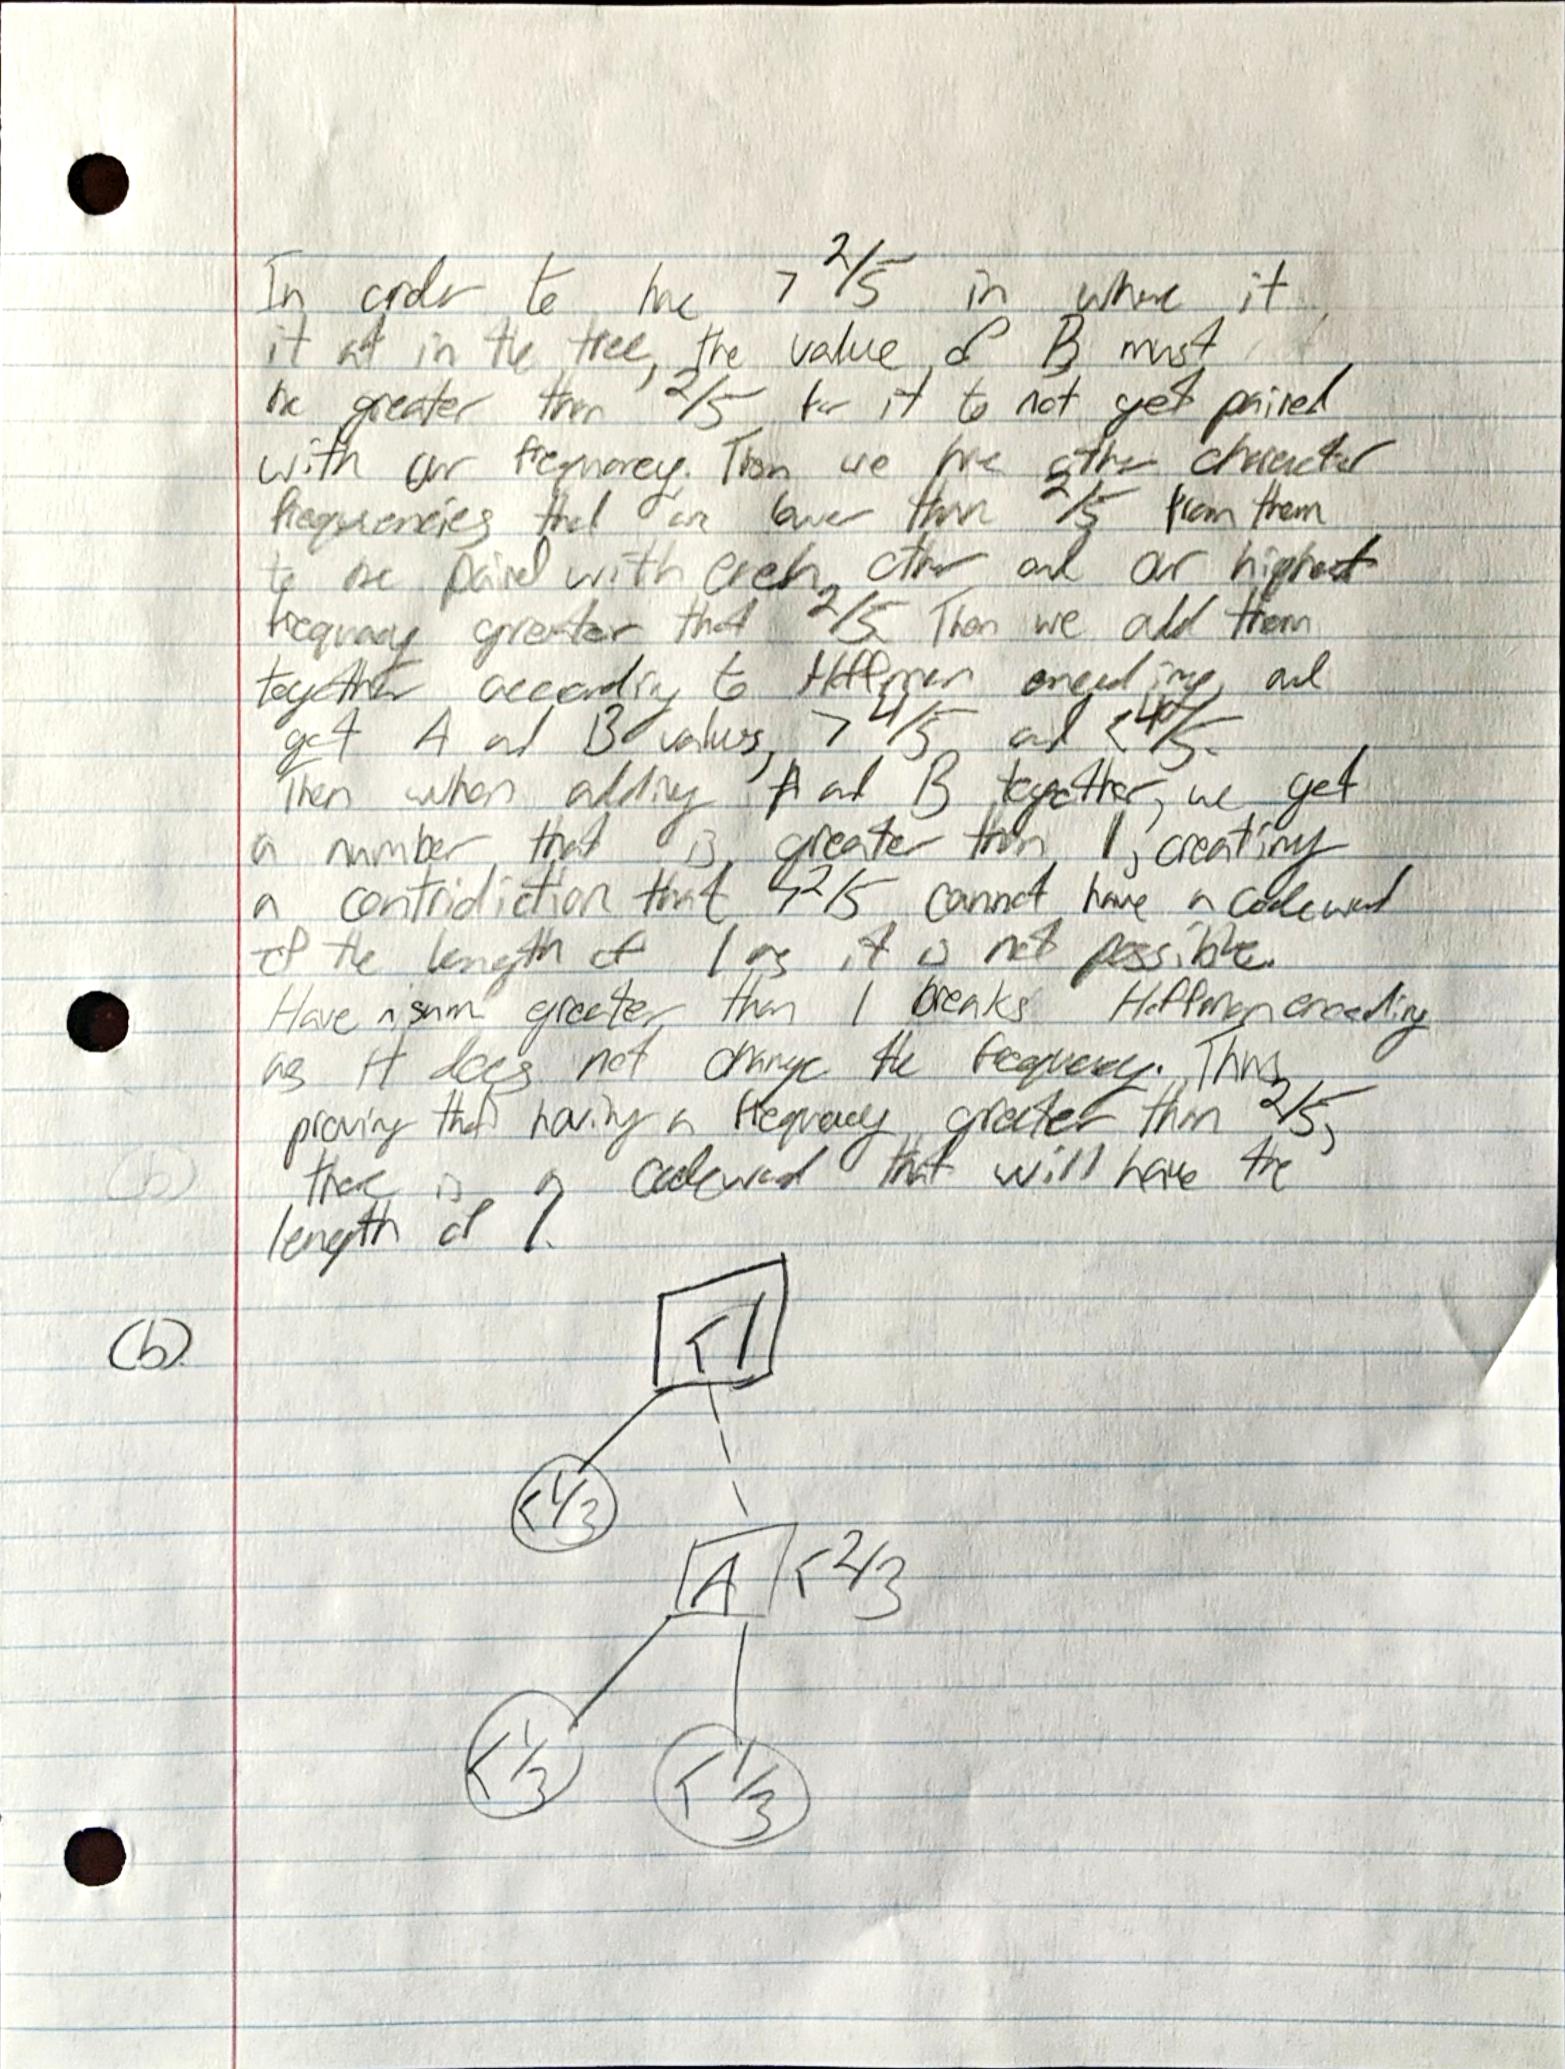 In order to be > 2/5 in where it
it at in the tree, the value of B must
be greater than 2/5 for it to not get paired
with our frequency. Then we have other character
frequencies that are lower than 2/5 from them
to be paired with each other and our highest
frequency greater that 2/5. Then we add them
together according to Hoffman encoding and
get A and B values, > 4/5 and < 4/5.
Then when adding A and B together, we get
a number that is greater than 1, creating
a contridiction that > 2/5 cannot have a codeword
of the length of 1 as it is not possible.
Have a sum greater than 1 breaks Hoffman encoding
as it does not change the frequency. Thus
proving that having a frequency greater than 2/5,
there is a codeword that will have the
length of 1.
(b)
(b)
<1
<1/3
A <2/3
<1/3 <1/3